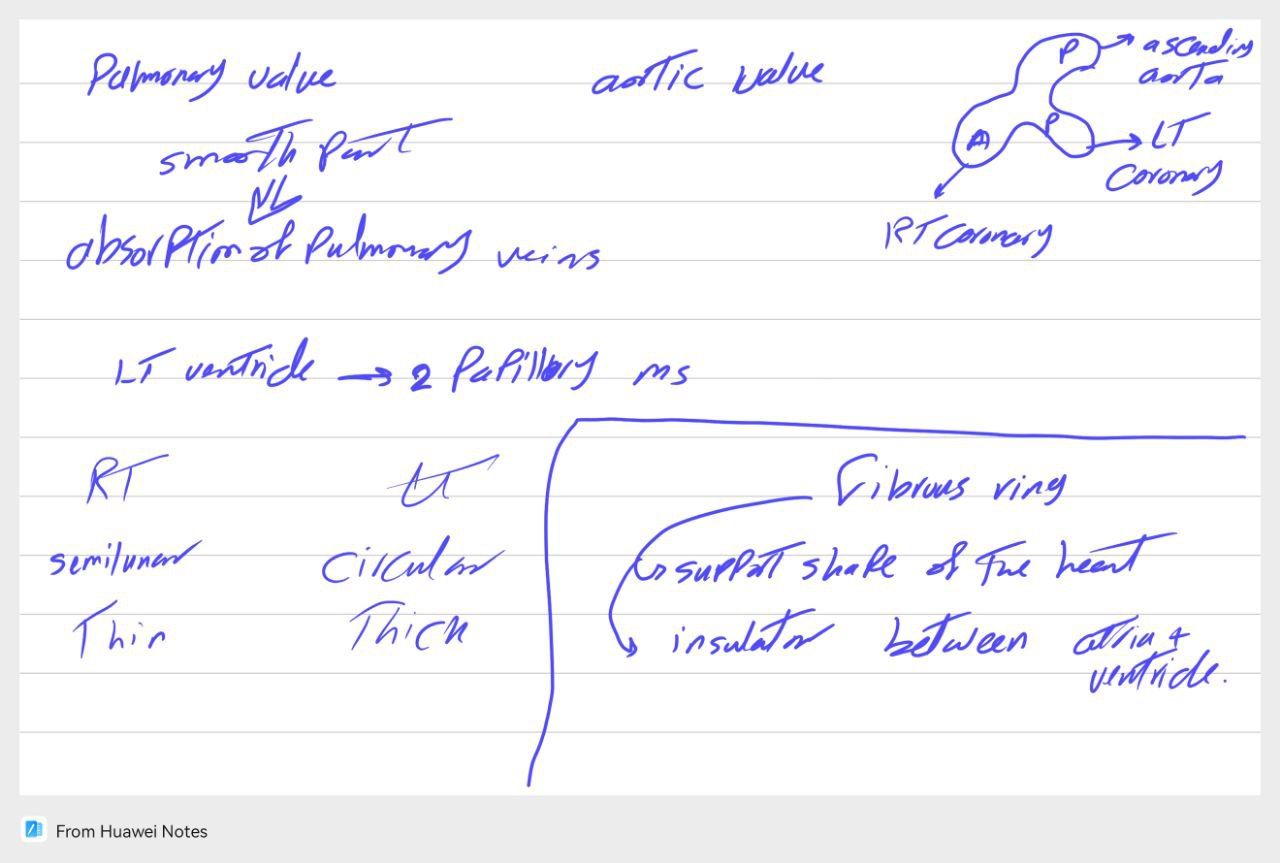 Pulmonary valve
aortic valve
P
ascending
aorta
A
P
LT
coronary
RT coronary
smooth part
absorption of pulmonary veins
LT ventricle → 2 Papillary ms
RT LT
semilunar Circular
Thin Thick
Fibrous ring
support shape of the heart
insulator between atria +
ventricle.
From Huawei Notes